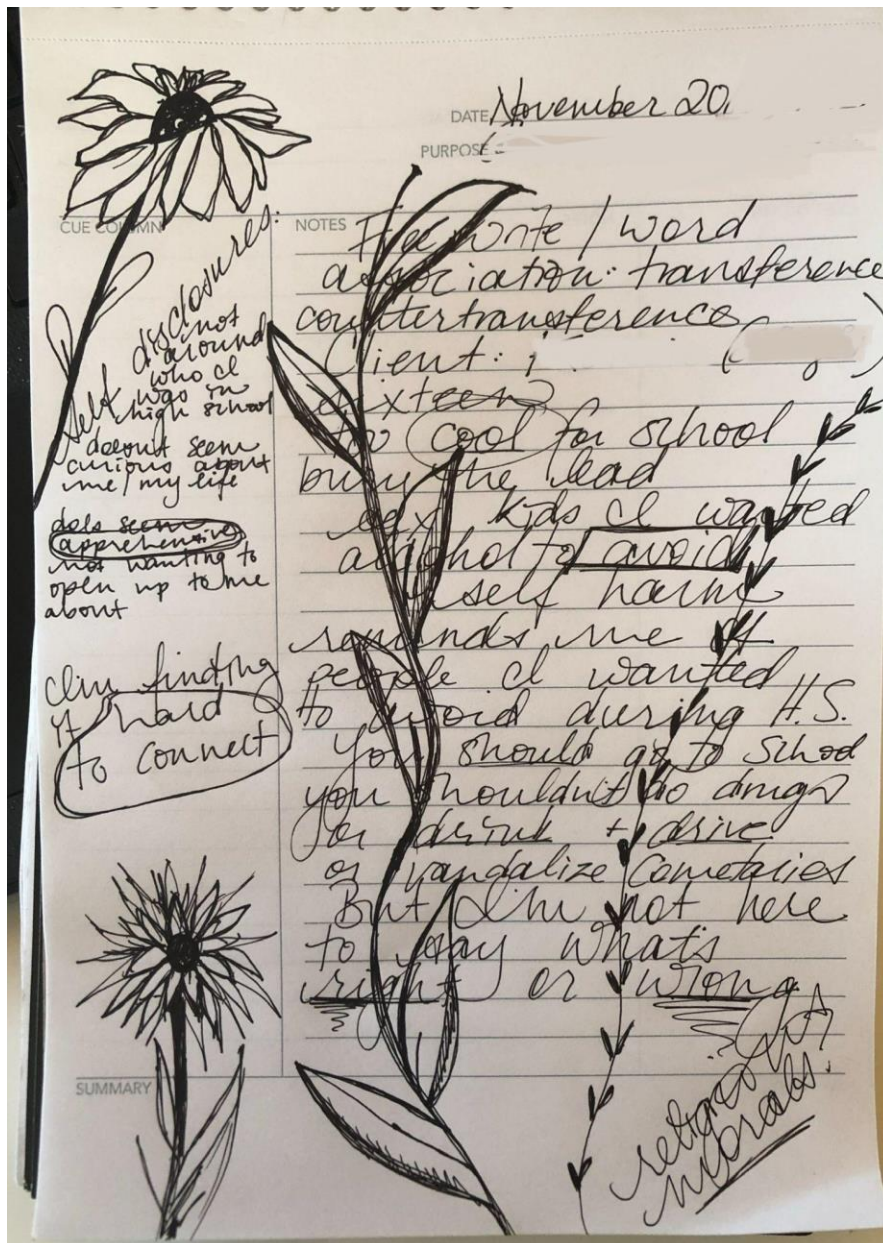 DATE November 20
PURPOSE
CUE COLUMN
Self disclosures:
not
around
who I
was in
high school
doesn't seem
curious about
me/my life
does seem
apprehensive
not wanting to
open up to me
about
I'm finding
it hard
to connect
NOTES Free write / word
association: transference
countertransference
Client:
sixteen
too cool for school
bury the lead
sex kids I wanted
alcohol to avoid
self harm
reminds me of
people I wanted
to avoid during H.S.
you should go to school
you shouldn't do drugs
or drink + drive
or vandalize
But I'm not here
to say what's
right or wrong
SUMMARY
morals.